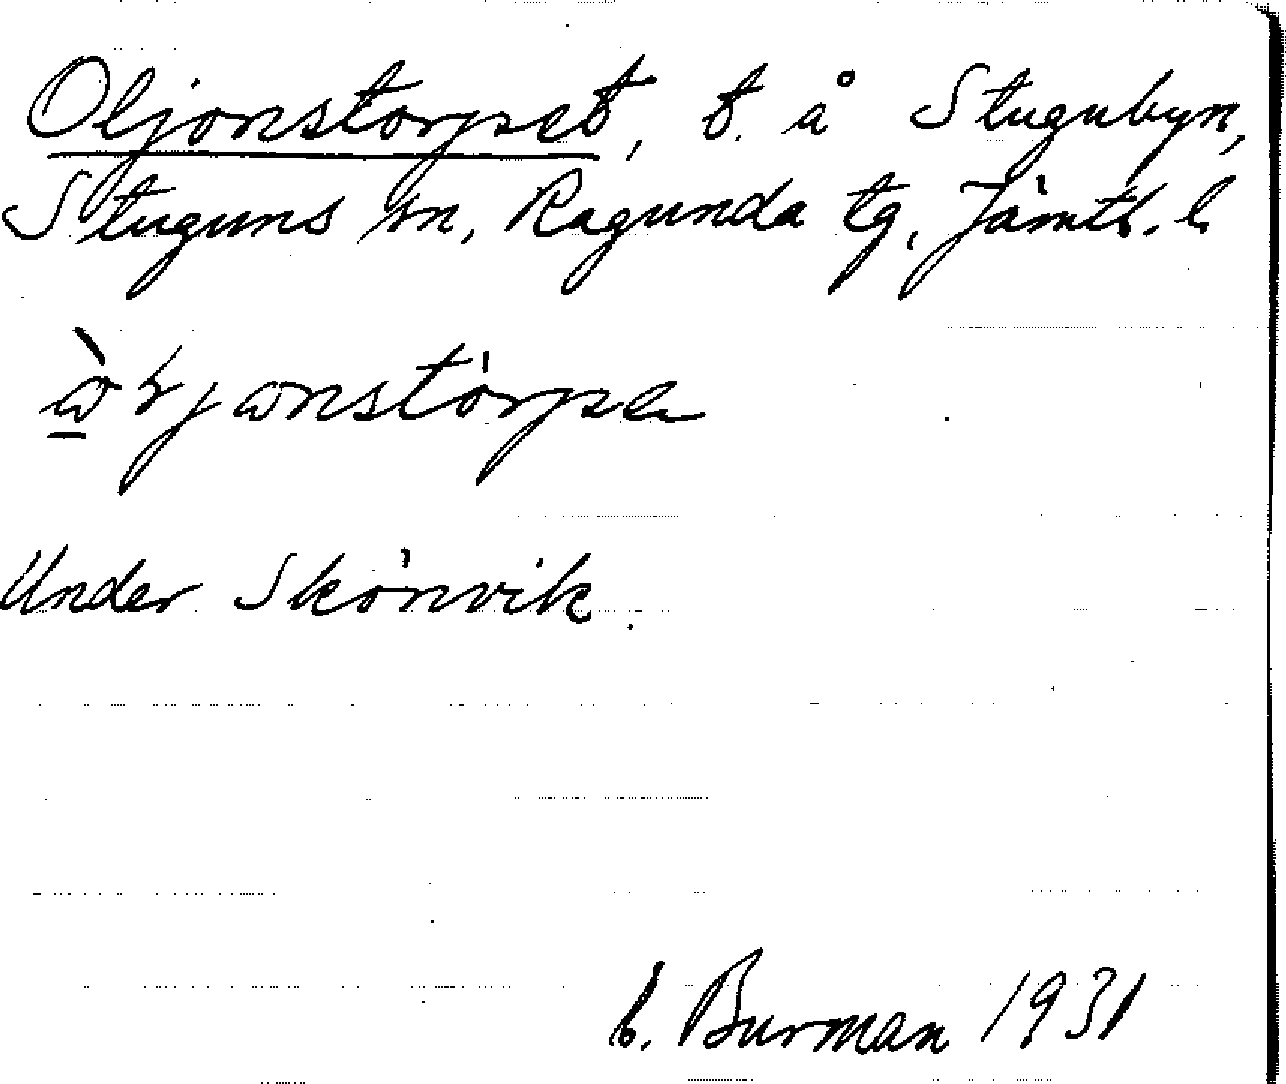 Oljonstorpet, t. å Stugubyn,
Stuguns sn, Ragunda tg, Jämtl. l
Under Skönvik.
Burman 1931